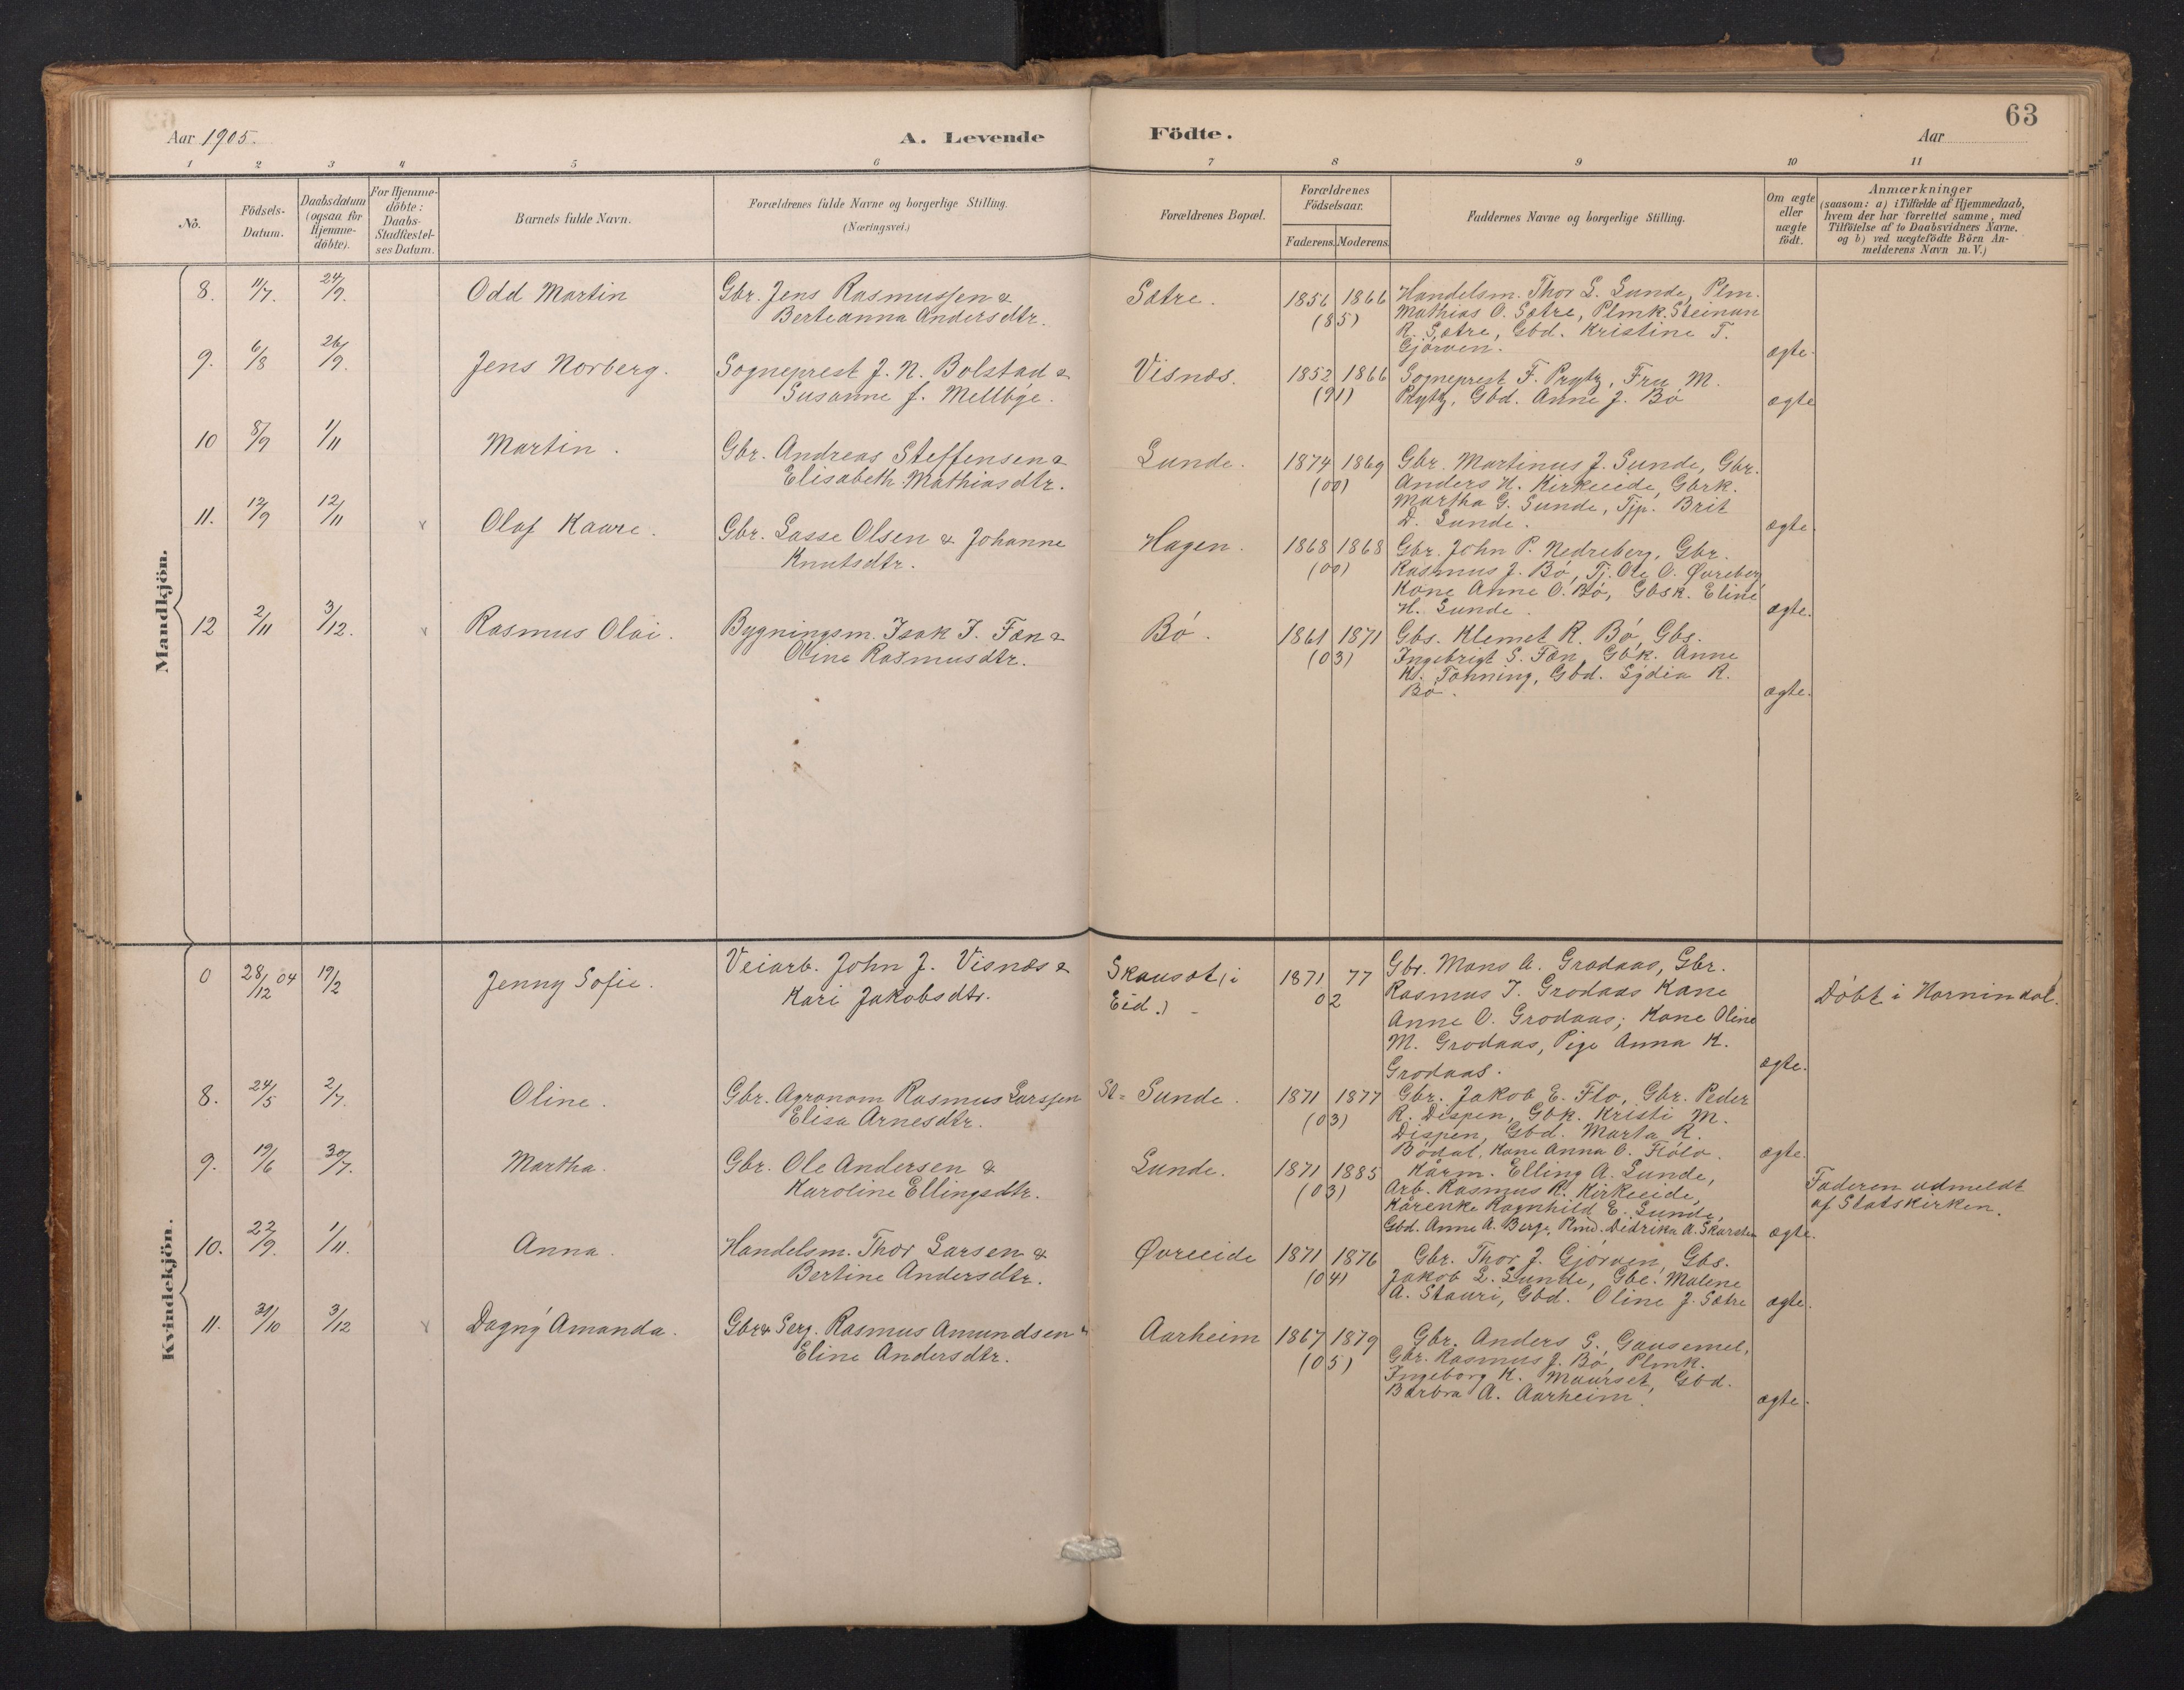 63
Aar 1905.
A. Levende Födte.
Aar
1 2 3 4 5 6 7 8 9 10 11
No.
Födsels-
Datum.
Daabsdatum
(ogsaa for
Hjemme-
döbte).
For Hjemme-
döbte:
Daabs-
Stadfæstel-
ses Datum.
Barnets fulde Navn.
Forældrenes fulde Navne og borgerlige Stilling.
(Næringsvei.)
Forældrenes Bopæl.
Forældrenes
Födselsaar.
Faderens. Moderens.
Faddernes Navne og borgerlige Stilling.
Om ægte
eller
uægte
födt.
Anmærkninger
(saasom: a) i Tilfælde af Hjemmedaab,
hvem der har forrettet samme, med
Tilföielse af to Daabsvidners Navne.
og b) ved uægtefödte Börn An-
melderens Navn m.V.)
Mandkjön.
8. 11/7. 24/9. Odd Martin
Gbr. Jens Rasmussen &
Berteanna Andersdtr.
Sætre.
1856 1866
(85)
Handelsm. Thor L. Sunde, Plm.
Mathias O. Sætre, Plmk. Steinun
R. Sætre, Gbd. Kristine T.
Gjörven.
ægte.
9. 6/8 26/9. Jens Norberg.
Sogneprest J. N. Bolstad &
Susanne f. Mellbye.
Visnæs.
1852 1866
(91)
Sogneprest F. Prytz, Fru M.
Prytz, Gbd. Anne J. Bö
ægte
10 8/9 1/11 Martin.
Gbr. Andreas Steffensen &
Elisabeth Mathiasdtr.
Sunde.
1874 1869
(00)
Gbr. Martinus J. Sunde, Gbr.
Anders H. Kirkeeide, Gbrk.
Martha G. Sunde, Tjp. Brit
D. Sunde.
ægte.
11. 12/9 12/11 v Olaf Kaare.
Gbr. Lasse Olsen & Johanne
Knutsdtr.
Hagen.
1868 1868
(00)
Gbr. John P. Nedreberg, Gbr.
Rasmus J. Bö, Tj. Ole O. Øvreberg
Kone Anne O. Bö, Gbsk. Eline
H. Sunde.
ægte.
12 2/11 3/12. v Rasmus Olai.
Bygningsm. Isak I. Fæn &
Oline Rasmusdtr.
Bö.
1861 1871
(03)
Gbs. Klemet R. Bö, Gbs.
Ingebrigt S. Fæn, Gbk. Anne
Kr. Tonning, Gbd. Lydia R.
Bö.
ægte.
Kvindekjön.
0 28/12 04 19/2 Jenny Sofie.
Veiarb. John J. Visnæs &
Kari Jakobsdtr.
Skausæt (i
Eid.)
1871 77
02
Gbr. Mons A. Grodaas, Gbr.
Rasmus I. Grodaas Kone
Anne O. Grodaas; Kone Oline
M. Grodaas, Pige Anna K.
Grodaas.
ægte.
Döbt i Hornindal.
8. 24/5 2/7. Oline.
Gbr. Agronom Rasmus Larssen
Elisa Arnesdtr.
St= Sunde.
1871 1877
(03)
Gbr. Jakob E. Flo, Gbr. Peder
R. Dispen, Gbk. Kristi M.
Dispen, Gbd. Marta R.
Bödal, Kone Anna O. Flölo.
ægte.
9. 19/6 30/7. Martha.
Gbr. Ole Andersen &
Karoline Ellingsdtr.
Sunde.
1871 1885
(03)
Kårm. Elling A. Sunde,
Arb. Rasmus R. Kirkeeide,
Kårenke Ragnhild E. Sunde,
Gbd. Anne A. Berge, Plmd. Didrika A. Skarsten
ægte.
Faderen udmeldt
af Statskirken.
10. 22/9. 1/11. Anna.
Handelsm. Thor Larsen &
Bertine Andersdtr.
Øvreeide
1871 1876
(04)
Gbr. Thor J. Gjörven, Gbs.
Jakob L. Sunde, Gbe. Malene
A. Stauri, Gbd. Oline J. Sætre
ægte.
11. 31/10 3/12 v Dagny Amanda.
Gbr. & Serg. Rasmus Amundsen &
Eline Andersdtr.
Aarheim
1867 1879
(05)
Gbr. Anders S. Gausemel,
Gbr. Rasmus J. Bö, Plmk.
Ingeborg K. Maurset, Gbd.
Barbra A. Aarheim.
ægte.